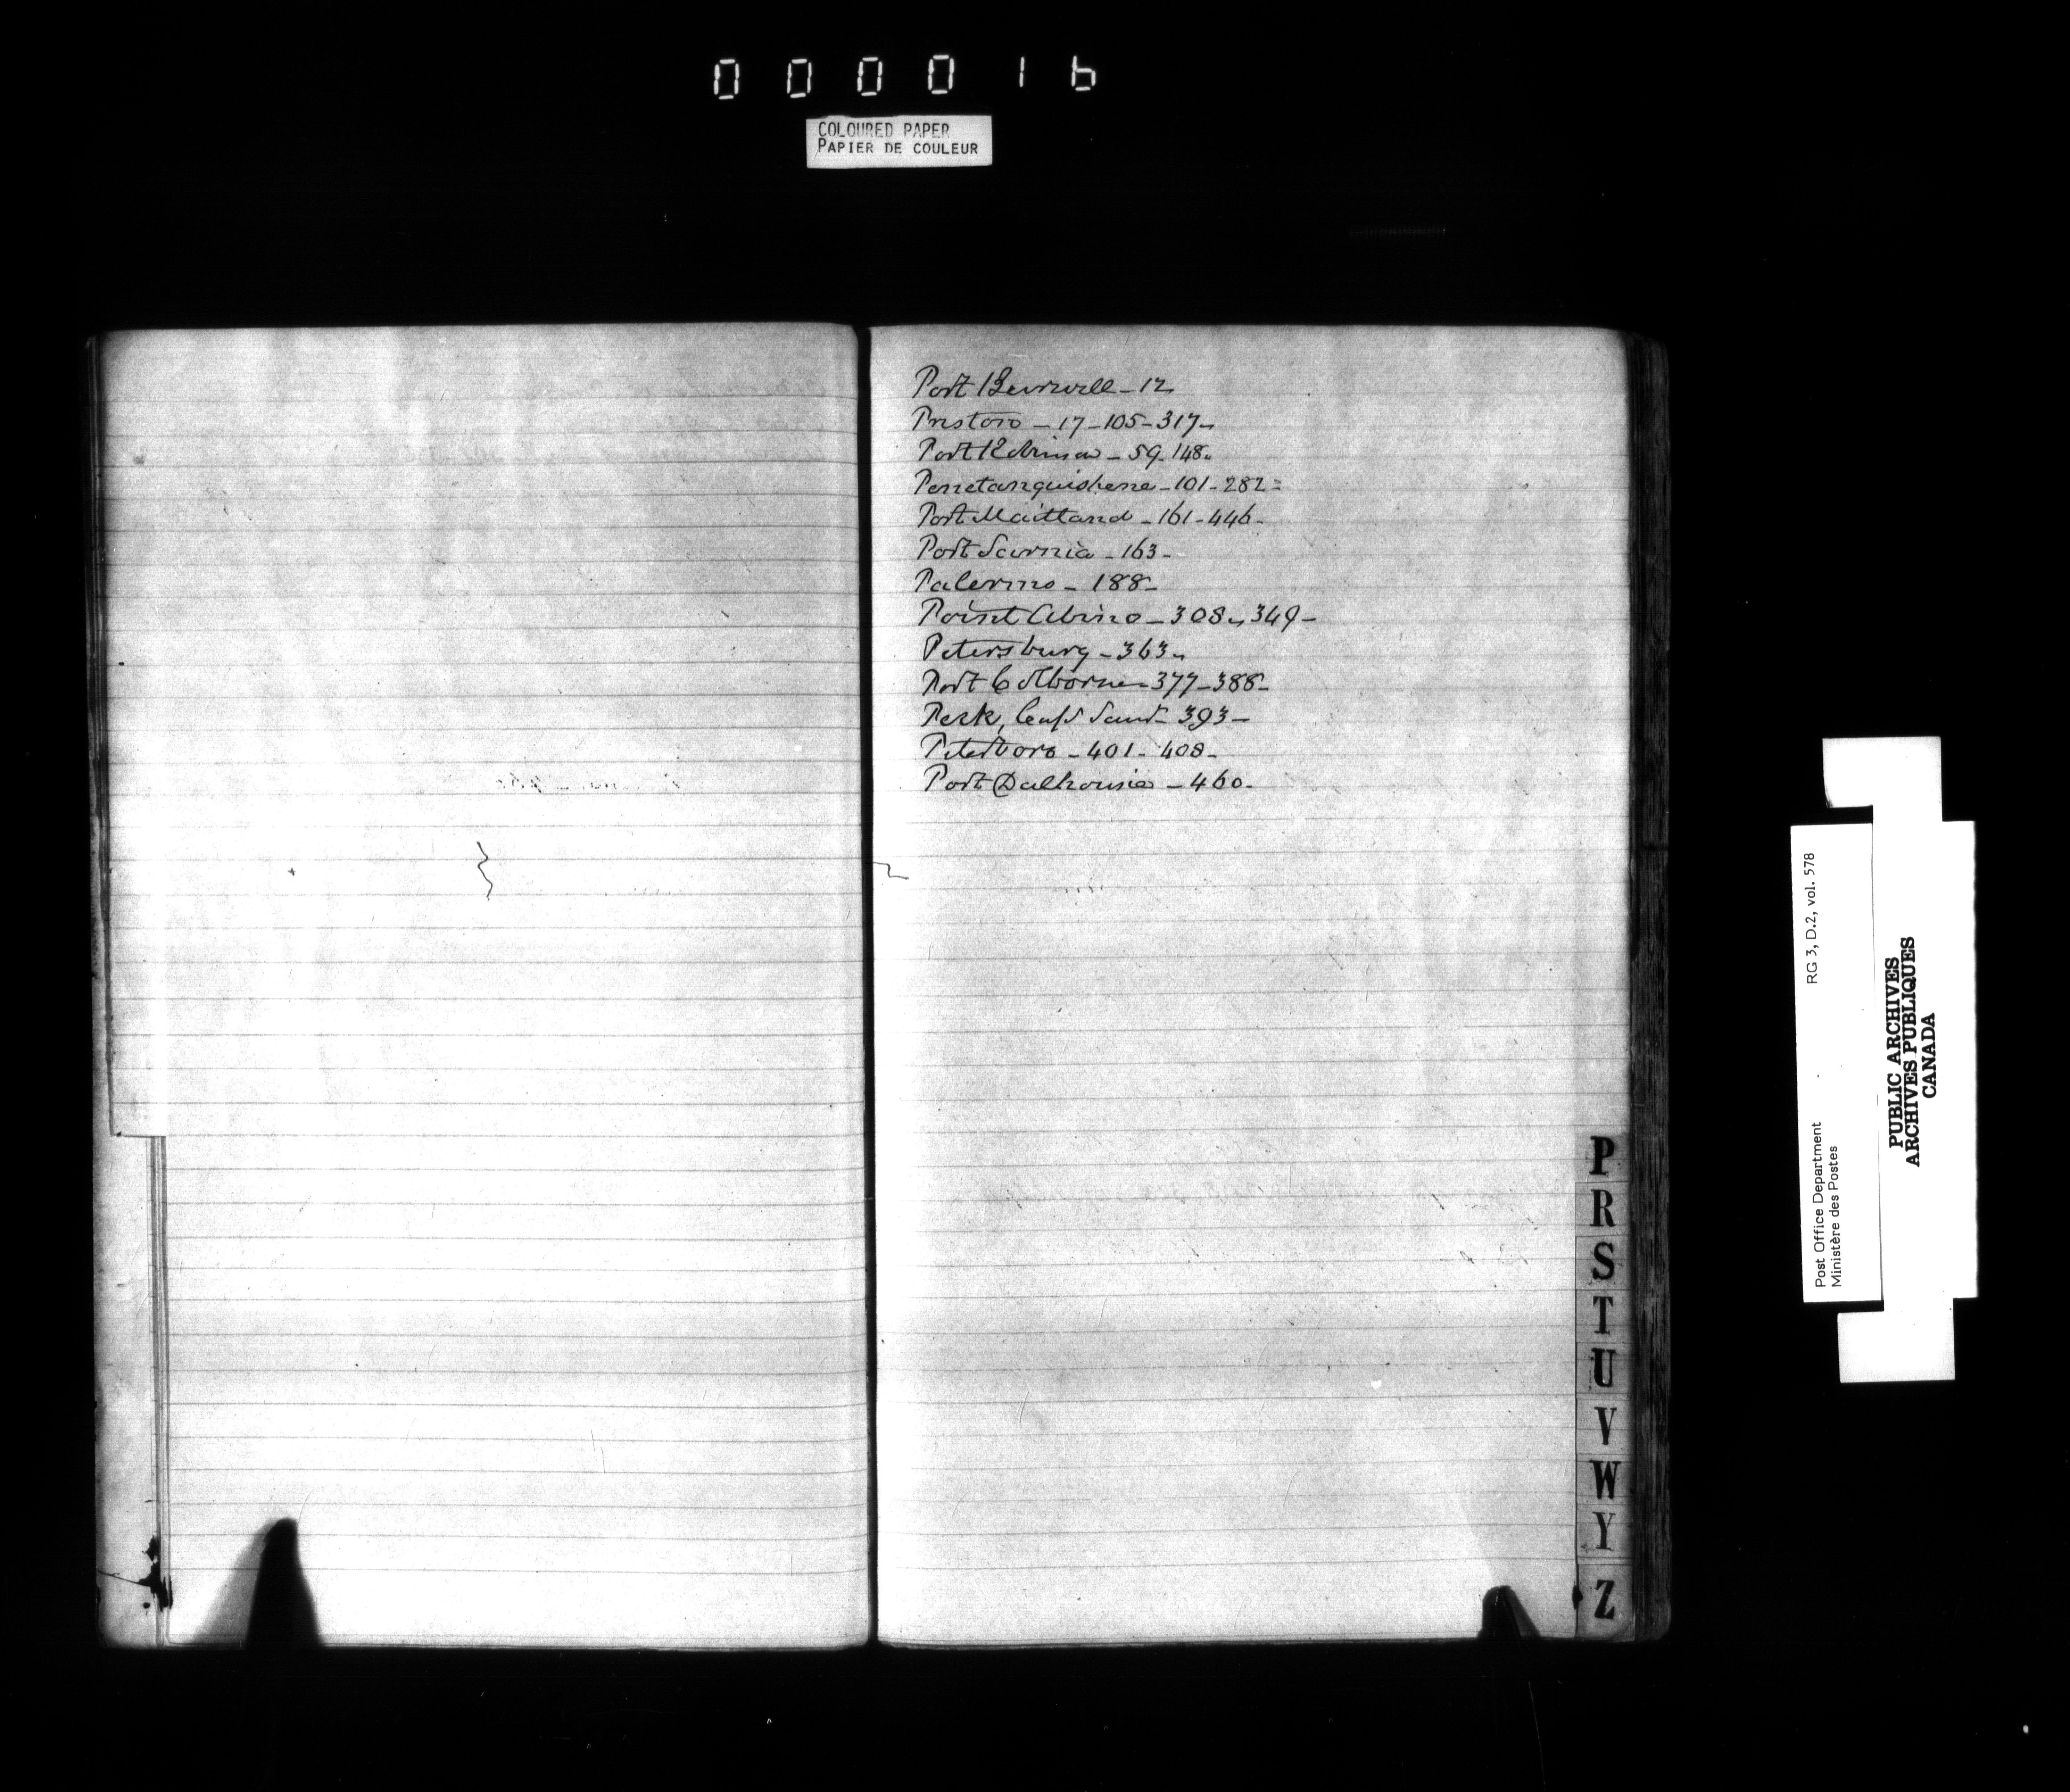 0 0 0 0 1 6
COLOURED PAPER
PAPIER DE COULEUR
Port Burwell - 12
Preston - 17 - 105 - 317 -
Port Robinson - 59 - 148 -
Penetanguishene - 101 - 282 -
Port Maitland - 161 - 446 -
Port Sarnia - 163 -
Palermo - 188 -
Point Abino - 308 -, 349 -
Petersburg - 363 -
Port Colborne - 377 - 388 -
393 -
Peterboro - 401 - 408 -
Port Dalhousie - 460 -
P
R
S
T
U
V
W
Y
Z
Post Office Department RG 3, D.2, vol. 578
Ministère des Postes
PUBLIC ARCHIVES
ARCHIVES PUBLIQUES
CANADA